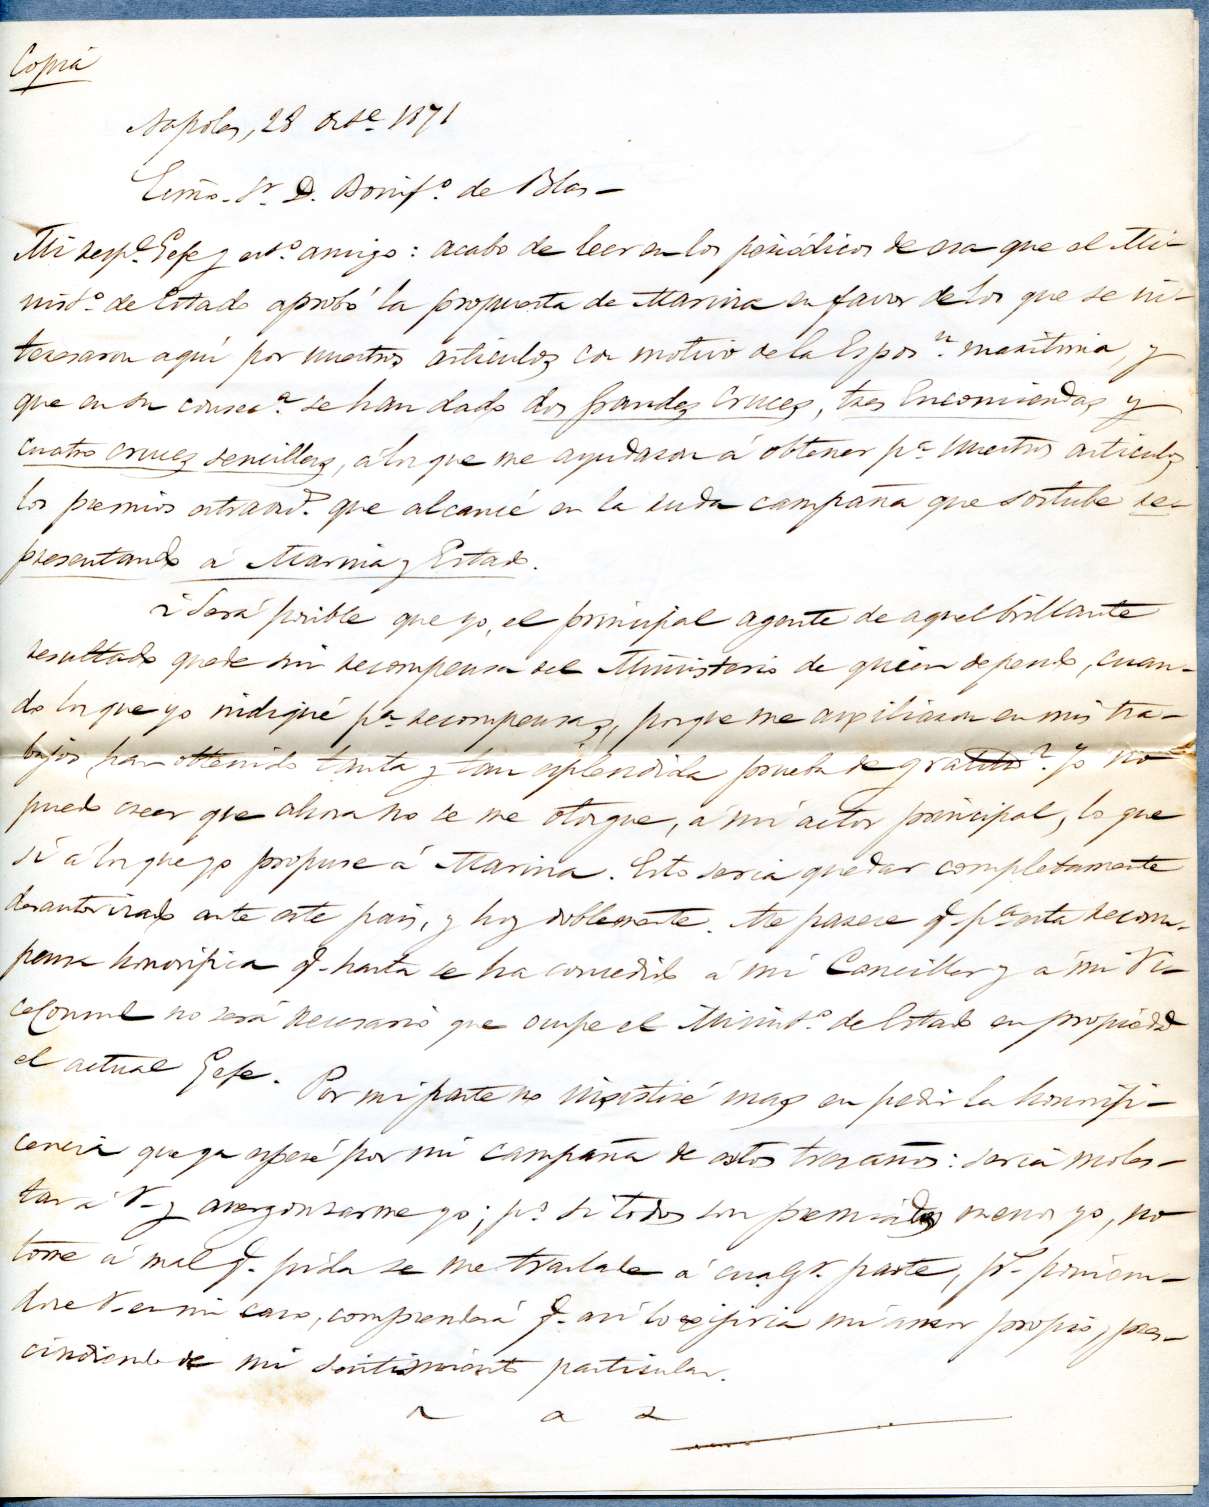 Copia
Napoles, 28 Octe. 1871
Exmo. Sr. D. Bonifo. de Blas—
Mi respe. Gefe y esto. amigo: acabo de leer en los periódicos de esa que el Mi-
nisto. de Estado aprobó la propuesta de Marina en favor de los que se in-
teresaron aquí por nuestros articulos con motivo de la Esposn. maritima, y
que en su conseca. se han dado dos grandes cruces, tres Encomiendas y
cuatro cruces sencillas, á los que me ayudaron á obtener pa. nuestros articulos
los premios estraord. que alcancé en la ruda campaña que sostube re-
presentando á Marina y Estado.
¿Será posible que yo, el principal agente de aquel brillante
resultado quede sin recompensa del Ministerio de quien dependo, cuan-
do los que yo indiqué pa. recompensas, porque me ausiliaron en mis tra-
bajos, han obtenido tanta y tan esplendida prueba de gratitud? Yo no
puedo creer que ahora no se me otorgue, á mi actor principal, lo que
sí á los que yo propuse á Marina. Esto seria quedar completamente
desautorizado ante este pais, y hoy doblemente. Me parece q. pa. esta recom-
pensa honorifica q. hasta se ha concedido á mi Canciller y á mi Vi-
ceConsul no será necesario que ocupe el Ministo. de Estado en propiedad
el actual Gefe. Por mi parte no insistiré mas en pedir la honorifi-
cencia que ya esperé por mi campaña de estos tres años: seria moles-
tar á V. y avergonzarme yo; po. si todos son premiados menos yo, no
tome á mal q. pida se me traslade á cualqr. parte, pr. ponien-
dose V. en mi caso, comprenderá q. asi lo exigiria mi amor propio, pres-
cindiendo de mi sentimiento particular.